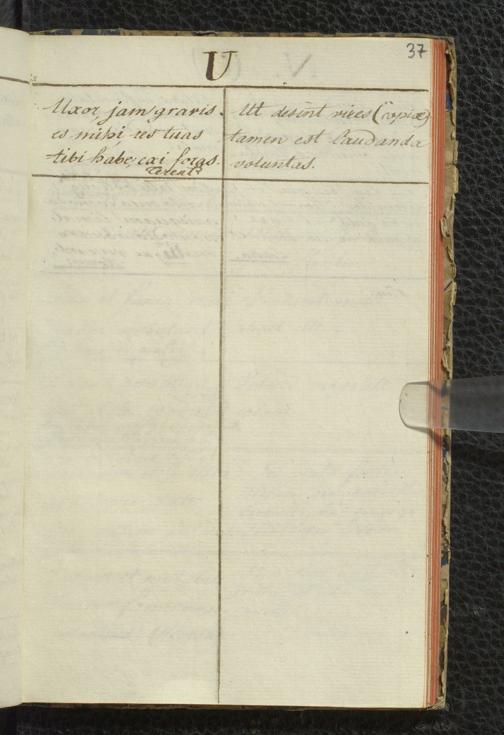 37
U
Uxor, jam gravis
es mihi res tuas
tibi habe, exi foras.
Terent.
Ut desint vires (copiæ)
tamen est laudanda
voluntas.